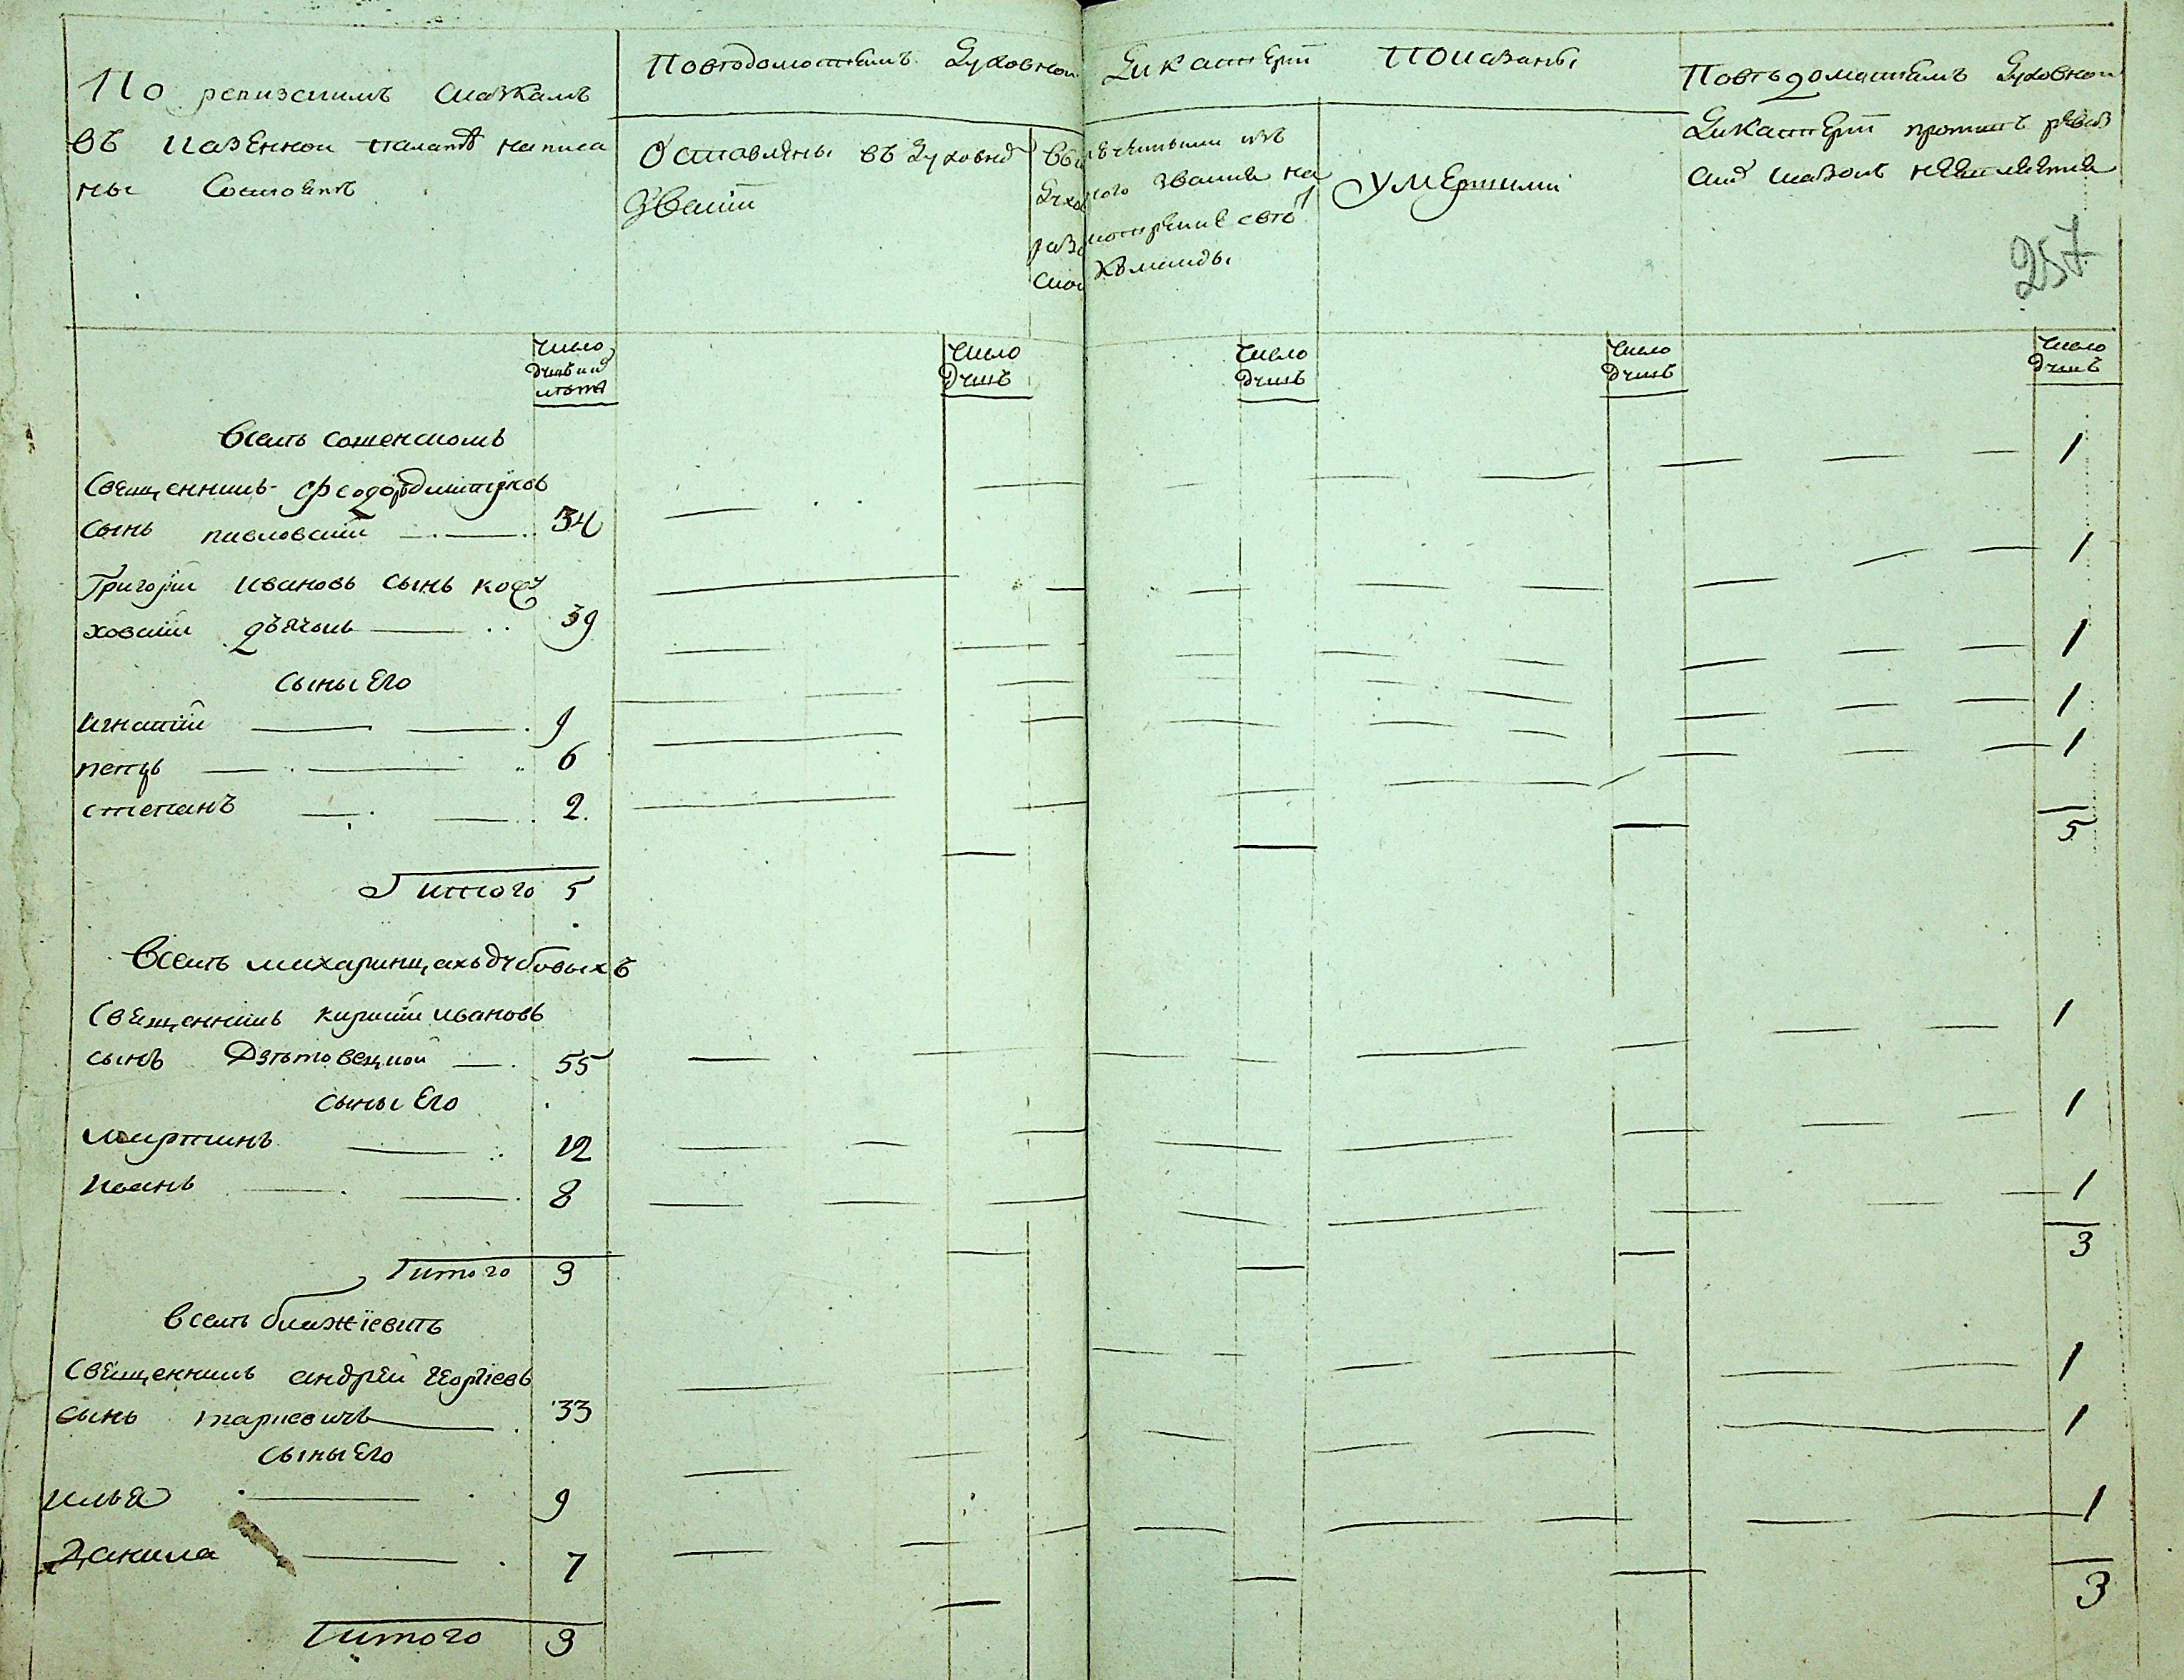 По ревизскимъ сказкамъ
въ казенной палатѣ написа
ны состоятъ
Поведомостямъ Духовной Дикастерїи Показаны
Оставлены въ духовнѡ
званїи
званїя на
разсмотренїе свѣ
команды
Умершими
Поведомостямъ Духовной
Дикастерїи противъ ревиз
сказокъ неявляется
257
число
душъ и ихъ
лѣта
число
душъ
число
душъ
число
душъ
число
душъ
Вселѣ сошенскомъ
Священникъ Феодоръ дмитрїевъ
сынъ павловскїй 34
1
Григорїй Ивановъ сынъ кожу
ховскїй дьячокъ 39
1
сыны Его
Игнатїй 9 1
петръ 6 1
степанъ 2 1
Итого 5 5
Вселѣ михаринцахъ дубовыхъ
Священникъ кирилъ ивановъ
сынъ 55 1
сыны Его
мартинъ 12 1
Иванъ 8 1
Итого 3 3
вселѣ блажїевкѣ
Священникъ андрей георгїевъ
сынъ тарневичъ 33 1
сыны Его
илья 9 1
Данила 7 1
Итого 3 3